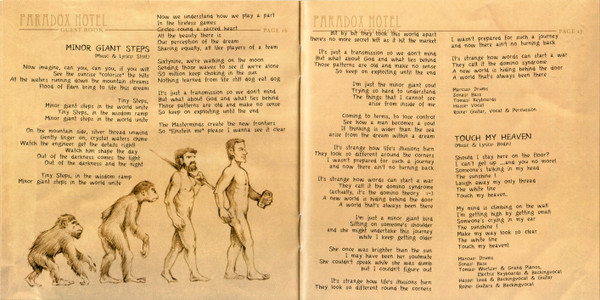 PARADOX HOTEL
GUEST BOOK
PAGE 26
MINOR GIANT STEPS
(Music & Lyrics: Stolt)
Now imagine, can you, can you, if you will
See the sunrise "colorize" the hills
All the waters running down the mountain streams
Flood of Eden bring to life this dream
Tiny Steps,
Minor giant steps in the world unite
Tiny Steps, in the wisdom ramp
Minor giant steps in the world unite
On the mountain side, silver thread unwind
Gently linger on, crystal waters chime
Watch the engineer get the details right)
Watch him shape the day
Out of the darkness comes the light
Out of the darkness and the night
Tiny Steps, in the wisdom ramp
Minor giant steps in the world unite
Now we understand how we play a part
In the tireless games
Circles round a sacred heart
All the beauty there is
Our perception of the dream
Sharing equally, all the players of a team
Sixtynine, we're walking on the moon
Sending those waves to see if we're alone
50 million keep choking in the sun
Nothing learned from life still dog eat dog
It's just a transmission so we don't mind
But what about God and what lies behind
Those patterns are old and make no sense
So keep on exploding until the end
The Masterminds create the new frontiers
So "Einstein me" please I wanna see it clear
PARADOX HOTEL
GUEST BOOK
PAGE 27
Bit by bit they took this world apart
there's no more secret left as it hit the market
It's just a transmission so we don't mind
But what about God and what lies behind
Those patterns are old and make no sense
So keep on exploding until the end
I'm just the minor giant soul
Trying so hard to understand
The things that I cannot see
arise from inside of me
Coming to terms, to lose control
See how a man becomes a soul
If thinking is wider than the sea
arise from the dream within a dream
It's strange how life's illusions turn
They took so different around the corners
I wasn't prepared for such a journey
and now there ain't no turning back
It's strange how words can start a war
They call it the domino syndrome
(actually, it's the domino theory :-)
A new world is hiding behind the door
A world that's always been there
I'm just a minor giant bird
Sitting on someone's shoulder
and she might undertake this journey
while I keep getting older
She once was brighter than the sun
I may have been her soulmate
She couldn't speak while she was dumb
but I couldn't figure out
It's strange how life's illusions turn
They took so different round the corners
I wasn't prepared for such a journey
and now there ain't no turning back
It's strange how words can start a war
They call it the domino syndrome
A new world is hiding behind the door
A world that's always been there
Marcus: Drums
Jonas: Bass
Tomas: Keyboards
Hasse: Vocal
Roine: Guitar, Vocal & Percussion
TOUCH MY HEAVEN
(Music & Lyrics: Bodin)
Should I stay here on the floor?
I can't get up ...and you no more!
Someone's talking in my head
The sunshine !
Laugh away my only thread
The white line
Touch my heaven,
My mind is climbing on the wall
I'm getting high by getting small
Someone's crying in my ear
The sunshine !
Make my way look so clear
The white line
Touch my heaven!
Marcus: Drums
Jonas: Bass
Tomas: Wurlizer & Grand Pianos,
Electric Keyboards & Backingvocal
Hasse: Lead & Backingvocal & Guitar
Roine: Guitars & Backingvocal